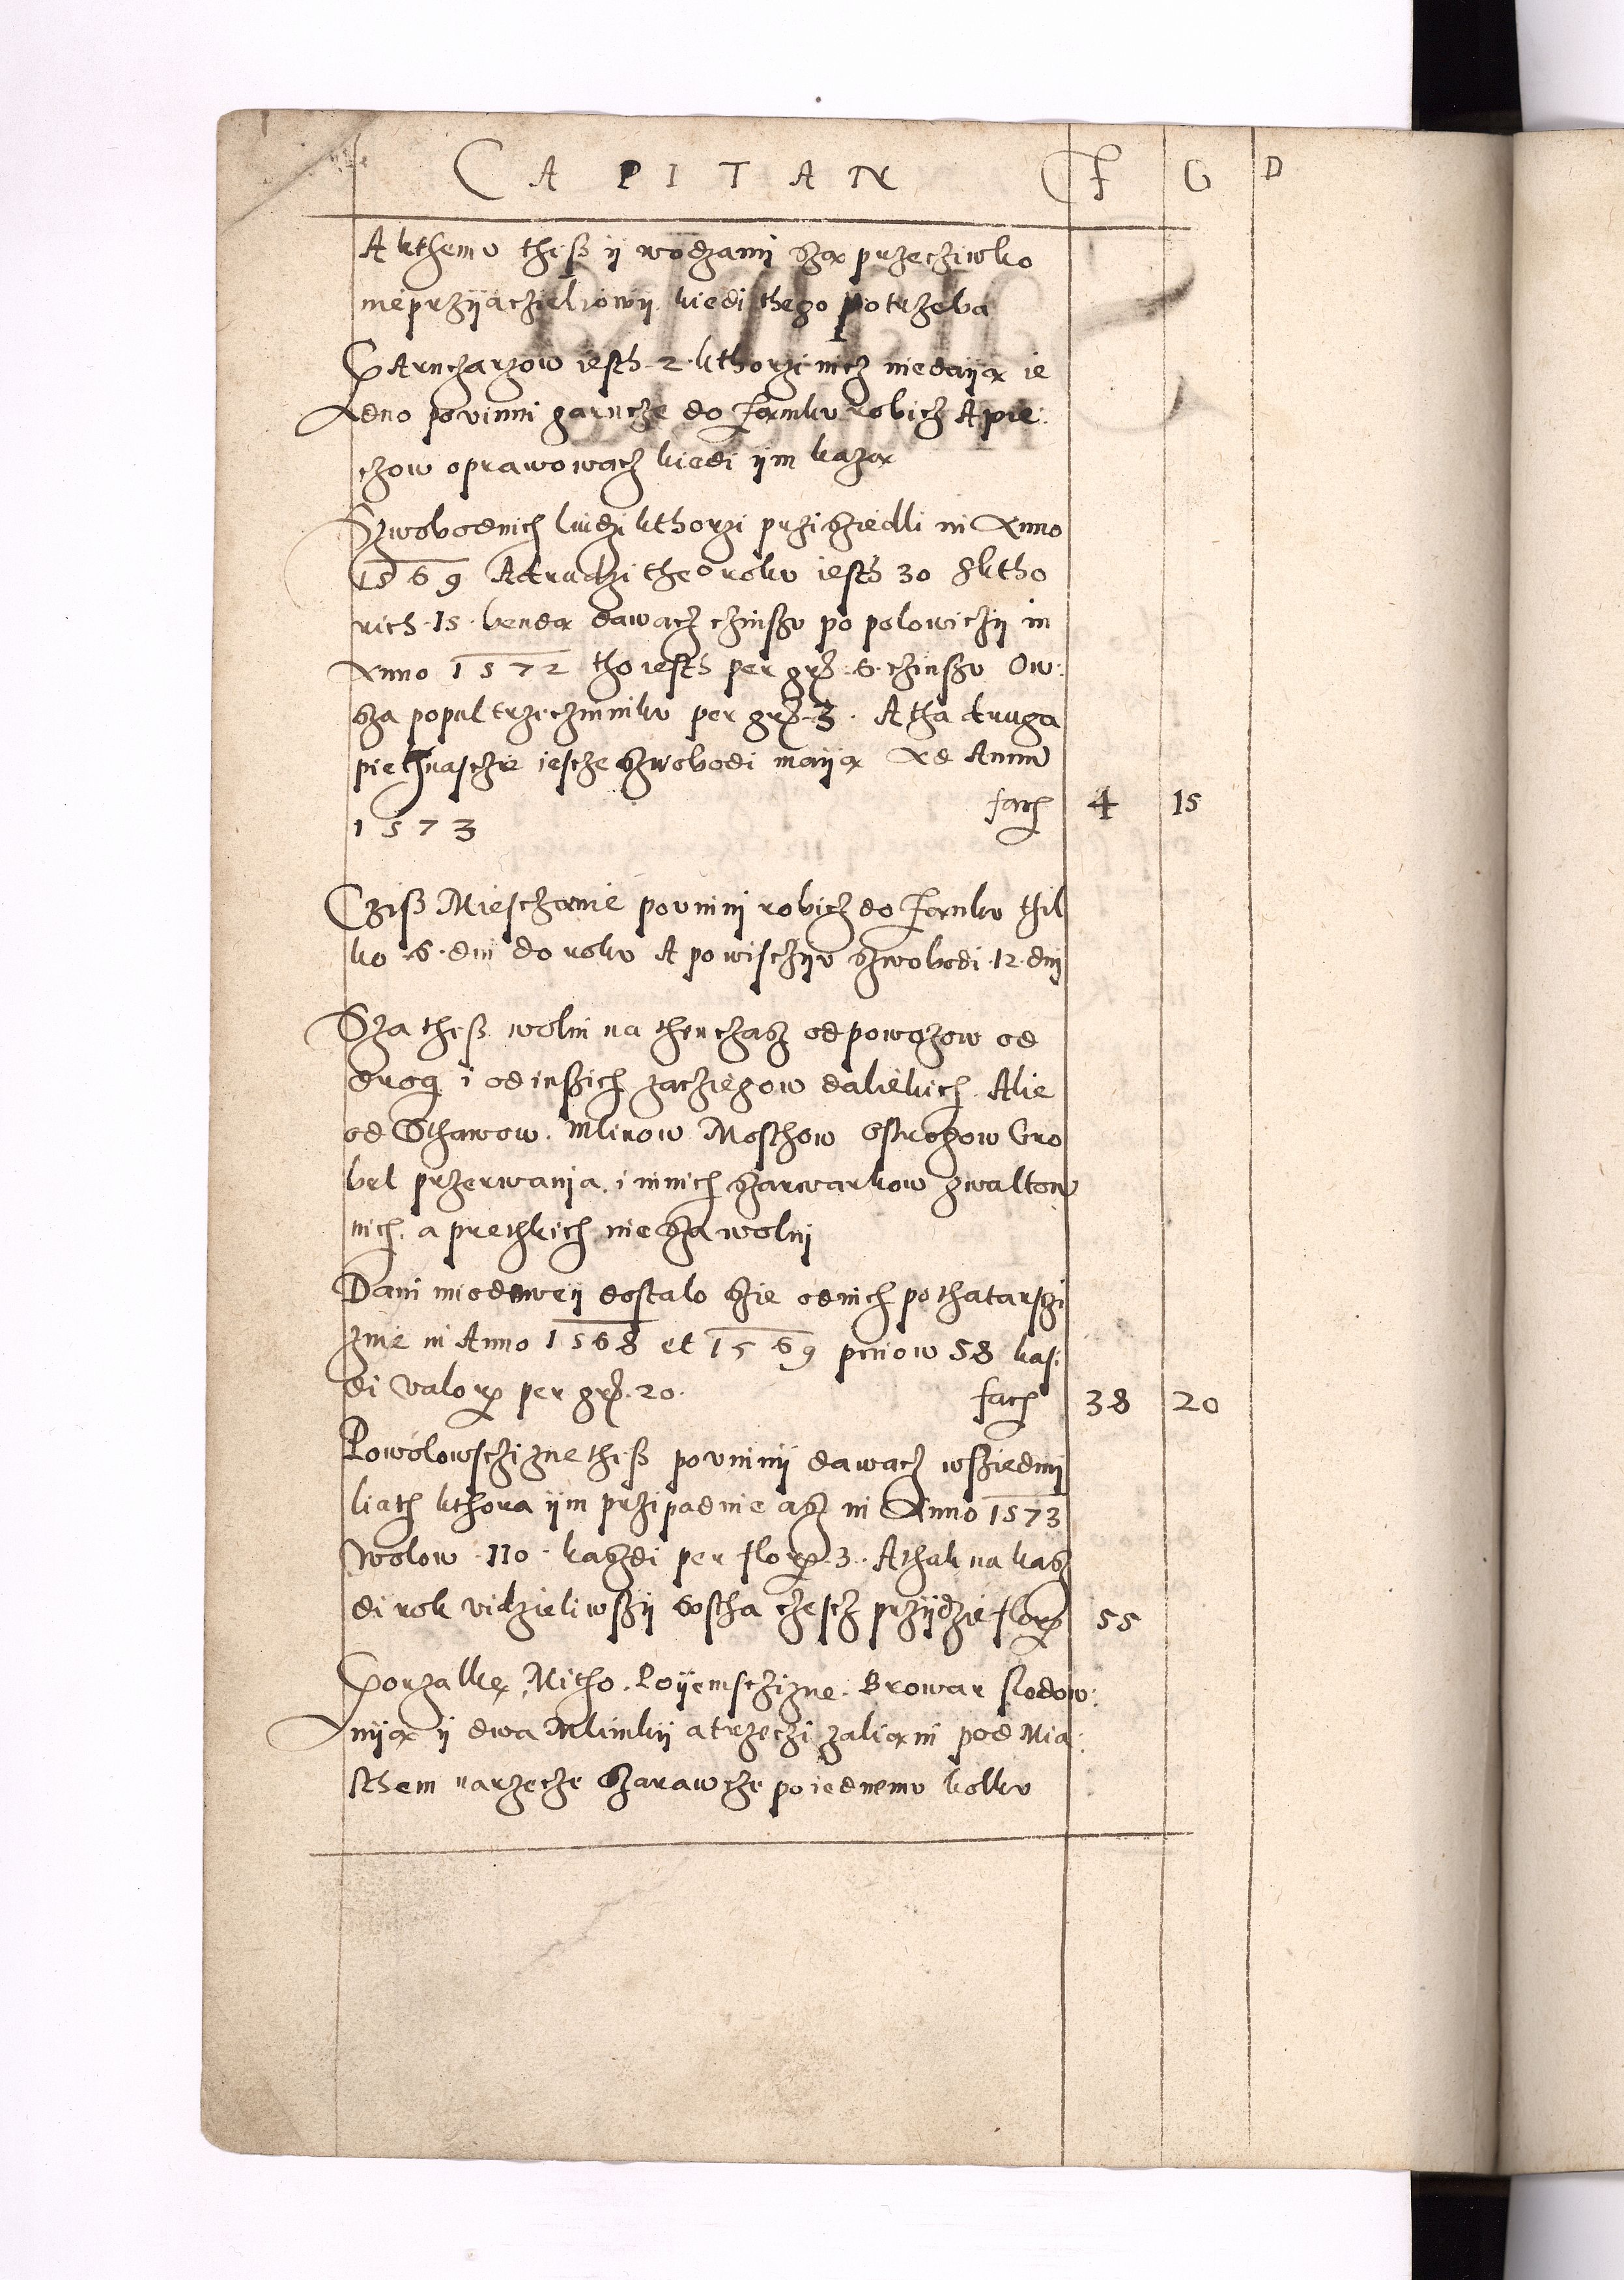 CAPITAN F G D
A kthemu theß ÿ wodzamj sza przecziwko
nieprzÿaczieliowÿ kiedi thego potrzeba
Garncharzow iesth 2 kthorzi nicz niedaÿa ie
dno powinni garncze do zamku robicz A pie:
czow oprawowacz kiedi ÿm kaza
Szwobodnich ludzi kthorzi przisziedli in Anno
1569 A drudzi theo roku iesth 30 S ktho
rich 15 benda dawacz czinszu po polowiczÿ in
Anno 1572 tho iesth per grs 6 czinszu Ow:
sza popul trzecziniku per grs 3. A tha druga
piethnasczie iescze szwobodi maÿa Ad Annum
1573 facit 4 15
Cziß Miesczanie powinni robicz do zamku thil
ko 6 dni do roku A powisczÿu szwobodi 12 dnj
Sza theß wolni na then czasz od powozow od
drog i od inszich zacziegow daliekich. Alie
od Sthawow. Mlinow Mosthow Ostrogow Gro
bel przerwania. i innich szarwarkow gwaltow
nich. a prethkich nie sza wolnj
Dani miodoweÿ dostalo szie od nich po thatarszi
znie in Anno 1568 et 1569 pniow 58 kas:
di valor per grs. 20. facit 38 20
Powolowsczizne theß powinnÿ dawacz w sziedmi
liath kthora ÿm przipadnie asz in Anno 1573
Wolow 110 kaszdi per flor 3. A thak na kasz
di rok vidzieliwszÿ szostha czescz przÿdzie flor 55
Gorzalke, Mitho. Poÿemsczizne. Browar slodow:
nÿa ÿ dwa Mlinkÿ a trzeczi zaliani pod Mia:
sthem na rzecze Szarawcze po iednemu kolku